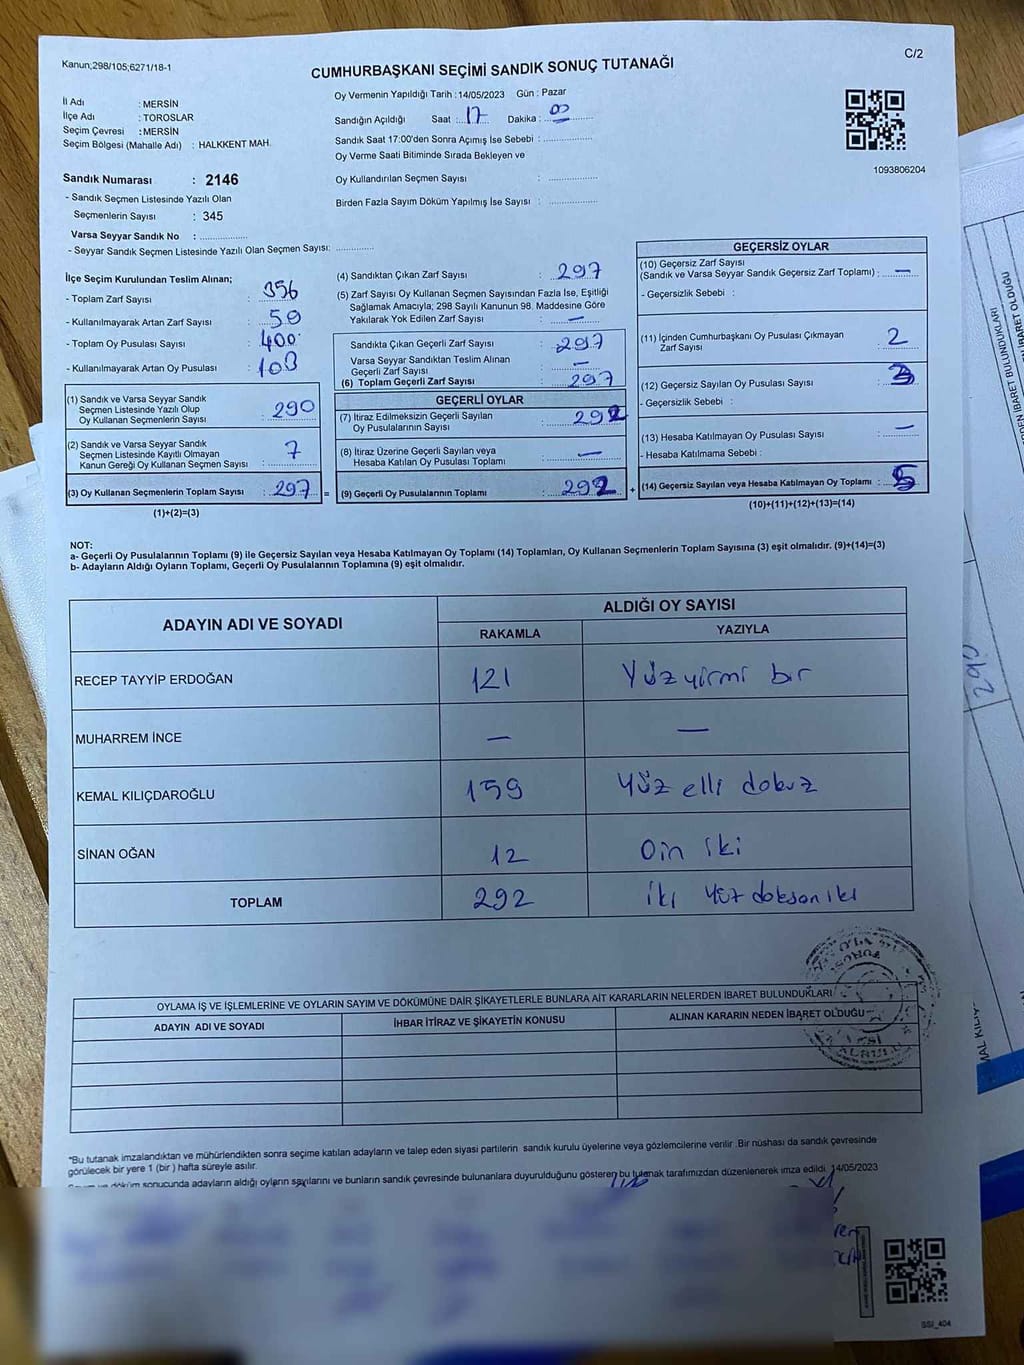 Kanun;298/105;6271/18-1
C/2
CUMHURBAŞKANI SEÇİMİ SANDIK SONUÇ TUTANAĞI
İl Adı : MERSİN
İlçe Adı : TOROSLAR
Seçim Çevresi : MERSİN
Seçim Bölgesi (Mahalle Adı) : HALKKENT MAH.
Oy Vermenin Yapıldığı Tarih :14/05/2023 Gün : Pazar
Sandığın Açıldığı Saat : 17 Dakika : 00
Sandık Saat 17:00'den Sonra Açımış İse Sebebi :
Oy Verme Saati Bitiminde Sırada Bekleyen ve
Oy Kullandırılan Seçmen Sayısı :
Birden Fazla Sayım Döküm Yapılmış İse Sayısı :
1093806204
Sandık Numarası : 2146
- Sandık Seçmen Listesinde Yazılı Olan
Seçmenlerin Sayısı : 345
Varsa Seyyar Sandık No :
- Seyyar Sandık Seçmen Listesinde Yazılı Olan Seçmen Sayısı:
İlçe Seçim Kurulundan Teslim Alınan;
- Toplam Zarf Sayısı : 356
- Kullanılmayarak Artan Zarf Sayısı : 59
- Toplam Oy Pusulası Sayısı : 400
- Kullanılmayarak Artan Oy Pusulası : 103
(1) Sandık ve Varsa Seyyar Sandık
Seçmen Listesinde Yazılı Olup
Oy Kullanan Seçmenlerin Sayısı : 290
(2) Sandık ve Varsa Seyyar Sandık
Seçmen Listesinde Kayıtlı Olmayan
Kanun Gereği Oy Kullanan Seçmen Sayısı : 7
(3) Oy Kullanan Seçmenlerin Toplam Sayısı : 297 =
(1)+(2)=(3)
(4) Sandıktan Çıkan Zarf Sayısı : 297
(5) Zarf Sayısı Oy Kullanan Seçmen Sayısından Fazla İse, Eşitliği
Sağlamak Amacıyla; 298 Sayılı Kanunun 98. Maddesine Göre
Yakılarak Yok Edilen Zarf Sayısı : —
Sandıkta Çıkan Geçerli Zarf Sayısı : 297
Varsa Seyyar Sandıktan Teslim Alınan
Geçerli Zarf Sayısı : —
(6) Toplam Geçerli Zarf Sayısı : 297
GEÇERLİ OYLAR
(7) İtiraz Edilmeksizin Geçerli Sayılan
Oy Pusulalarının Sayısı : 292
(8) İtiraz Üzerine Geçerli Sayılan veya
Hesaba Katılan Oy Pusulası Toplamı : —
(9) Geçerli Oy Pusulalarının Toplamı : 292 +
GEÇERSİZ OYLAR
(10) Geçersiz Zarf Sayısı
(Sandık ve Varsa Seyyar Sandık Geçersiz Zarf Toplamı) : —
- Geçersizlik Sebebi :
(11) İçinden Cumhurbaşkanı Oy Pusulası Çıkmayan
Zarf Sayısı : 2
(12) Geçersiz Sayılan Oy Pusulası Sayısı : 3
- Geçersizlik Sebebi :
(13) Hesaba Katılmayan Oy Pusulası Sayısı : —
- Hesaba Katılmama Sebebi :
(14) Geçersiz Sayılan veya Hesaba Katılmayan Oy Toplamı : 5
(10)+(11)+(12)+(13)=(14)
NOT:
a- Geçerli Oy Pusulalarının Toplamı (9) ile Geçersiz Sayılan veya Hesaba Katılmayan Oy Toplamı (14) Toplamları, Oy Kullanan Seçmenlerin Toplam Sayısına (3) eşit olmalıdır. (9)+(14)=(3)
b- Adayların Aldığı Oyların Toplamı, Geçerli Oy Pusulalarının Toplamına (9) eşit olmalıdır.
ADAYIN ADI VE SOYADI
ALDIĞI OY SAYISI
RAKAMLA YAZIYLA
RECEP TAYYİP ERDOĞAN 121 Yüzyirmi bir
MUHARREM İNCE — —
KEMAL KILIÇDAROĞLU 159 Yüz elli dokuz
SİNAN OĞAN 12 Oin iki
TOPLAM 292 iki yüz doksan iki
OYLAMA İŞ VE İŞLEMLERİNE VE OYLARIN SAYIM VE DÖKÜMÜNE DAİR ŞİKAYETLERLE BUNLARA AİT KARARLARIN NELERDEN İBARET BULUNDUKLARI
ADAYIN ADI VE SOYADI İHBAR İTİRAZ VE ŞİKAYETİN KONUSU ALINAN KARARIN NEDEN İBARET OLDUĞU
*Bu tutanak imzalandıktan ve mühürlendikten sonra seçime katılan adayların ve talep eden siyasi partilerin sandık kurulu üyelerine veya gözlemcilerine verilir .Bir nüshası da sandık çevresinde
görülecek bir yere 1 (bir ) hafta süreyle asılır.
döküm sonucunda adayların aldığı oyların sayılarını ve bunların sandık çevresinde bulunanlara duyurulduğunu gösteren bu tutanak tarafımızdan düzenlenerek imza edildi. 14/05/2023
SSI_404
290